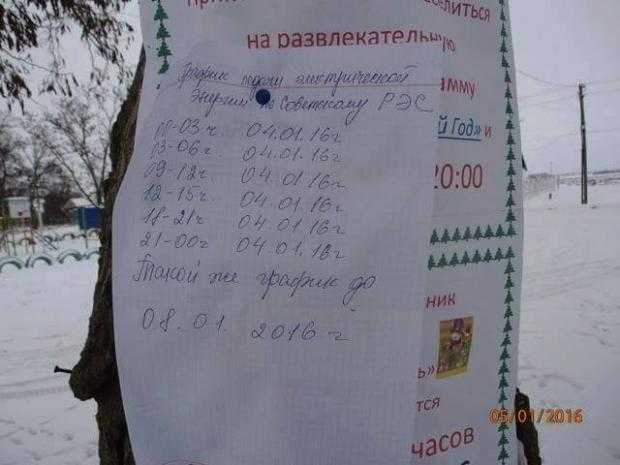 селиться
на развлекательную
График подачи электрической
Энергии по Советскому РЭС
амму
00-03ч. 04.01.16г
й Год» и
03-06г. 04.01.16г
09-12г. 04.01.16г
20:00
12-15г. 04.01.16г
18-21г. 04.01.16г
21-00г 04.01.16г
Такой же график до
08.01. 2016 г
ник
ь»
тся
часов
05/01/2016